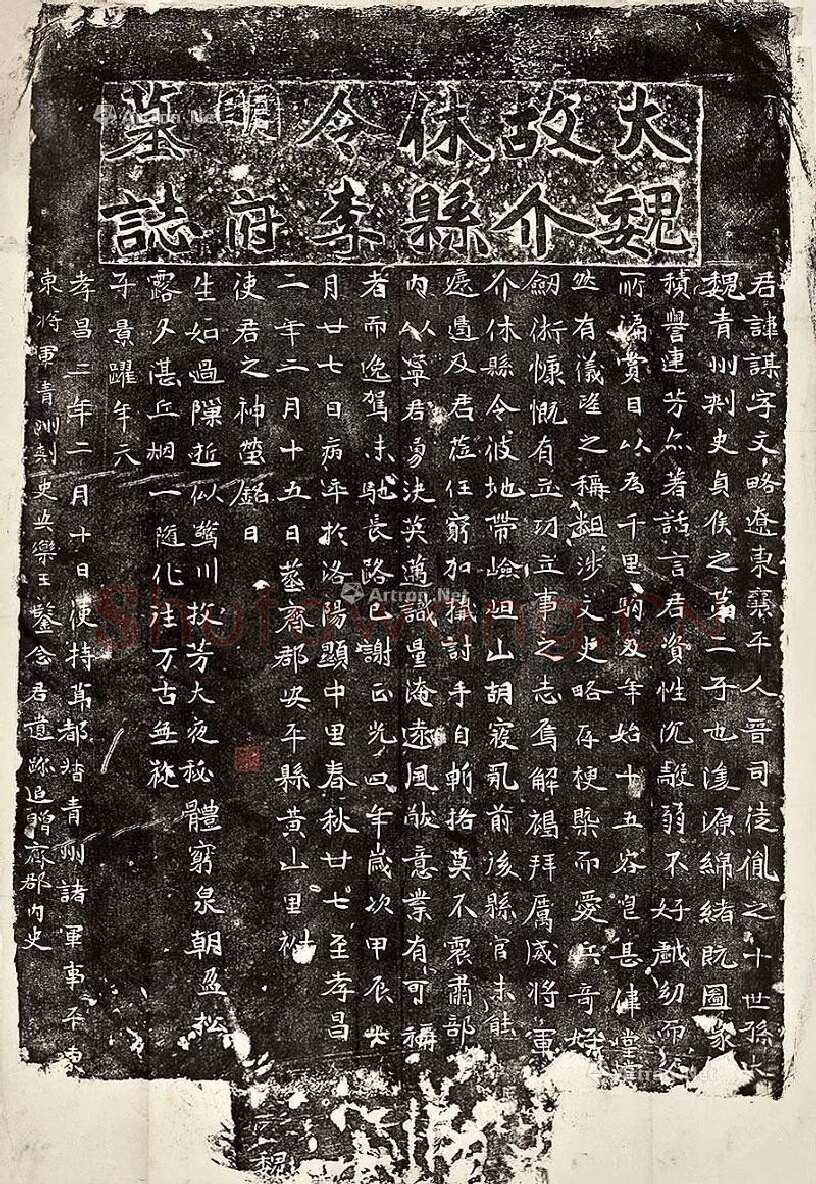 大魏
故介
休縣
令李
明府
墓誌
君諱謀字文略遼東襄平人晉司徒胤之十世孫大
魏青州刺史貞侯之第二子也濬源綿緒既圖家
積譽連芳亦著話言君資性沉敞弱不好戲幼而
所誦賞目以為千里駒及年始十五容皃甚偉堂
然有儀望之稱麤涉文史略存梗槩而愛兵奇好
劒術慷慨有立功立事之志焉解褐拜厲威將軍
介休縣令彼地帶嶮岨山胡寇乱前後縣官未能
遏及君莅任窮加搆討手自斬挌莫不震肅部
內以寧君勇決英邁識量淹遠風猷意業有可稱
者而逸駕未馳長路已謝正光四年歲次甲辰
月廿七日病卒於洛陽顯中里春秋廿七至孝昌
二年二月十五日葬齊郡安平縣黃山里祔
使君之神塋銘曰
生如過隙逝似驚川投芳大夜秘體窮泉朝盈松
露夕湛丘烟一隨化往万古無旋
子景躍年六
孝昌三年二月十日使持節都督青州諸軍事平東
東將軍青州刺史安樂王鑒念君遺跡追贈齊郡內史
魏
Artron.Net
Artron.Net
Shufawang.CN